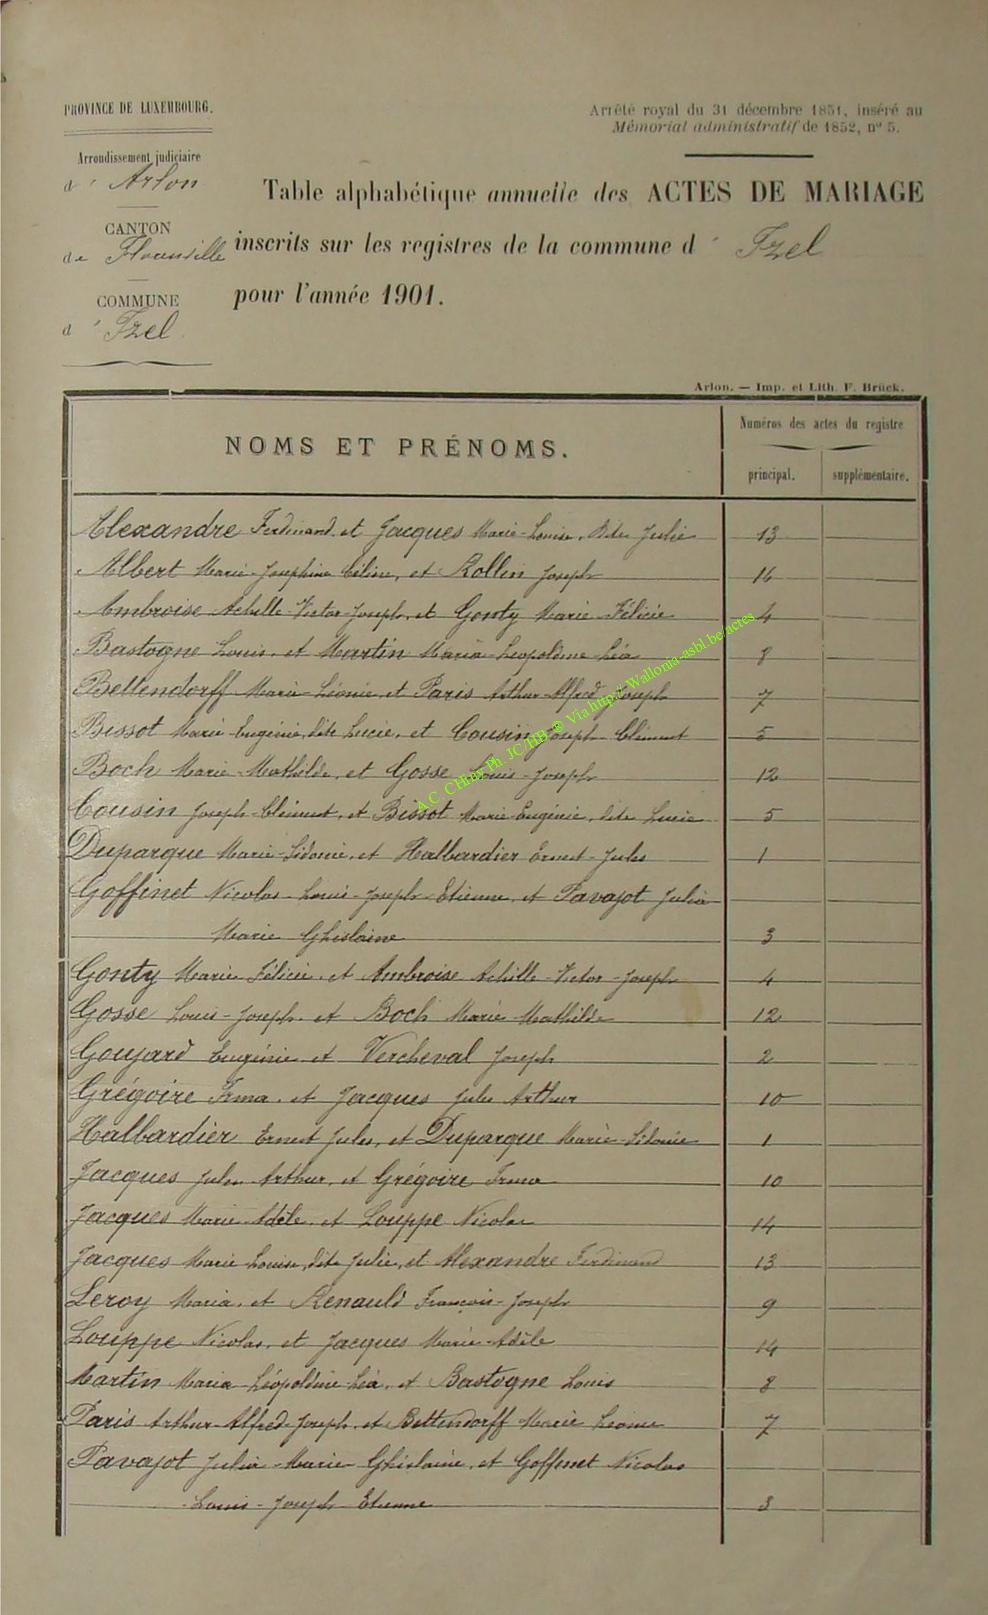 PROVINCE DE LUXEMBOURG.
Arrêté royal du 31 décembre 1851, inséré au
Mémorial administratif de 1852, nº 5.
Arrondissement judiciaire
d' Arlon
Table alphabétique annuelle des ACTES DE MARIAGE
CANTON
de Florenville
inscrits sur les registres de la commune d' Izel
COMMUNE
d' Izel
pour l'année 1901.
Arlon. — Imp. et Lith. F. Brück.
NOMS ET PRÉNOMS.
Numéros des actes du registre
principal.
supplémentaire.
Alexandre Ferdinand et Jacques Marie-Louise, dite Julie 13
Albert Marie-Joséphine Céline, et Rollin Joseph
Ambroise Achille-Victor-Joseph, et Gonty Marie Félicie 4
Bastogne Louis, et Martin Maria Léopoldine Léa 8
Bettendorff Marie-Léonie et Paris Arthur-Alfred Joseph 7
Bissot Marie-Eugénie, dite Lucie, et Cousin Joseph-Clément 5
Boch Marie-Mathilde, et Gosse Louis-Joseph 12
Cousin Joseph-Clément, et Bissot Marie-Eugénie, dite Lucie 5
Duparque Marie-Sidonie, et Halbardier Ernest-Jules 1
Goffinet Nicolas-Louis-Joseph-Etienne, et Pavajot Julia
Marie Ghislaine 3
Gonty Marie-Félicie, et Ambroise Achille-Victor-Joseph 4
Gosse Louis-Joseph, et Boch Marie Mathilde 12
Goujard Eugénie et Vercheval Joseph 2
Grégoire Irma, et Jacques Jules Arthur 10
Halbardier Ernest Jules, et Duparque Marie-Sidonie 1
Jacques Jules Arthur, et Grégoire Irma 10
Jacques Marie-Adèle, et Louppe Nicolas 14
Jacques Marie Louise, dite Julie, et Alexandre Ferdinand 13
Leroy Maria, et Renauld François-Joseph 9
Louppe Nicolas, et Jacques Marie-Adèle 14
Martin Maria Léopoldine Léa, et Bastogne Louis 8
Paris Arthur-Alfred-Joseph, et Bettendorff Marie Léonie 7
Pavajot Julia-Marie-Ghislaine, et Goffinet Nicolas
Louis-Joseph-Etienne 3
A.C. CHiny Ph. JC/HB © Via http://Wallonia-asbl.be/actes